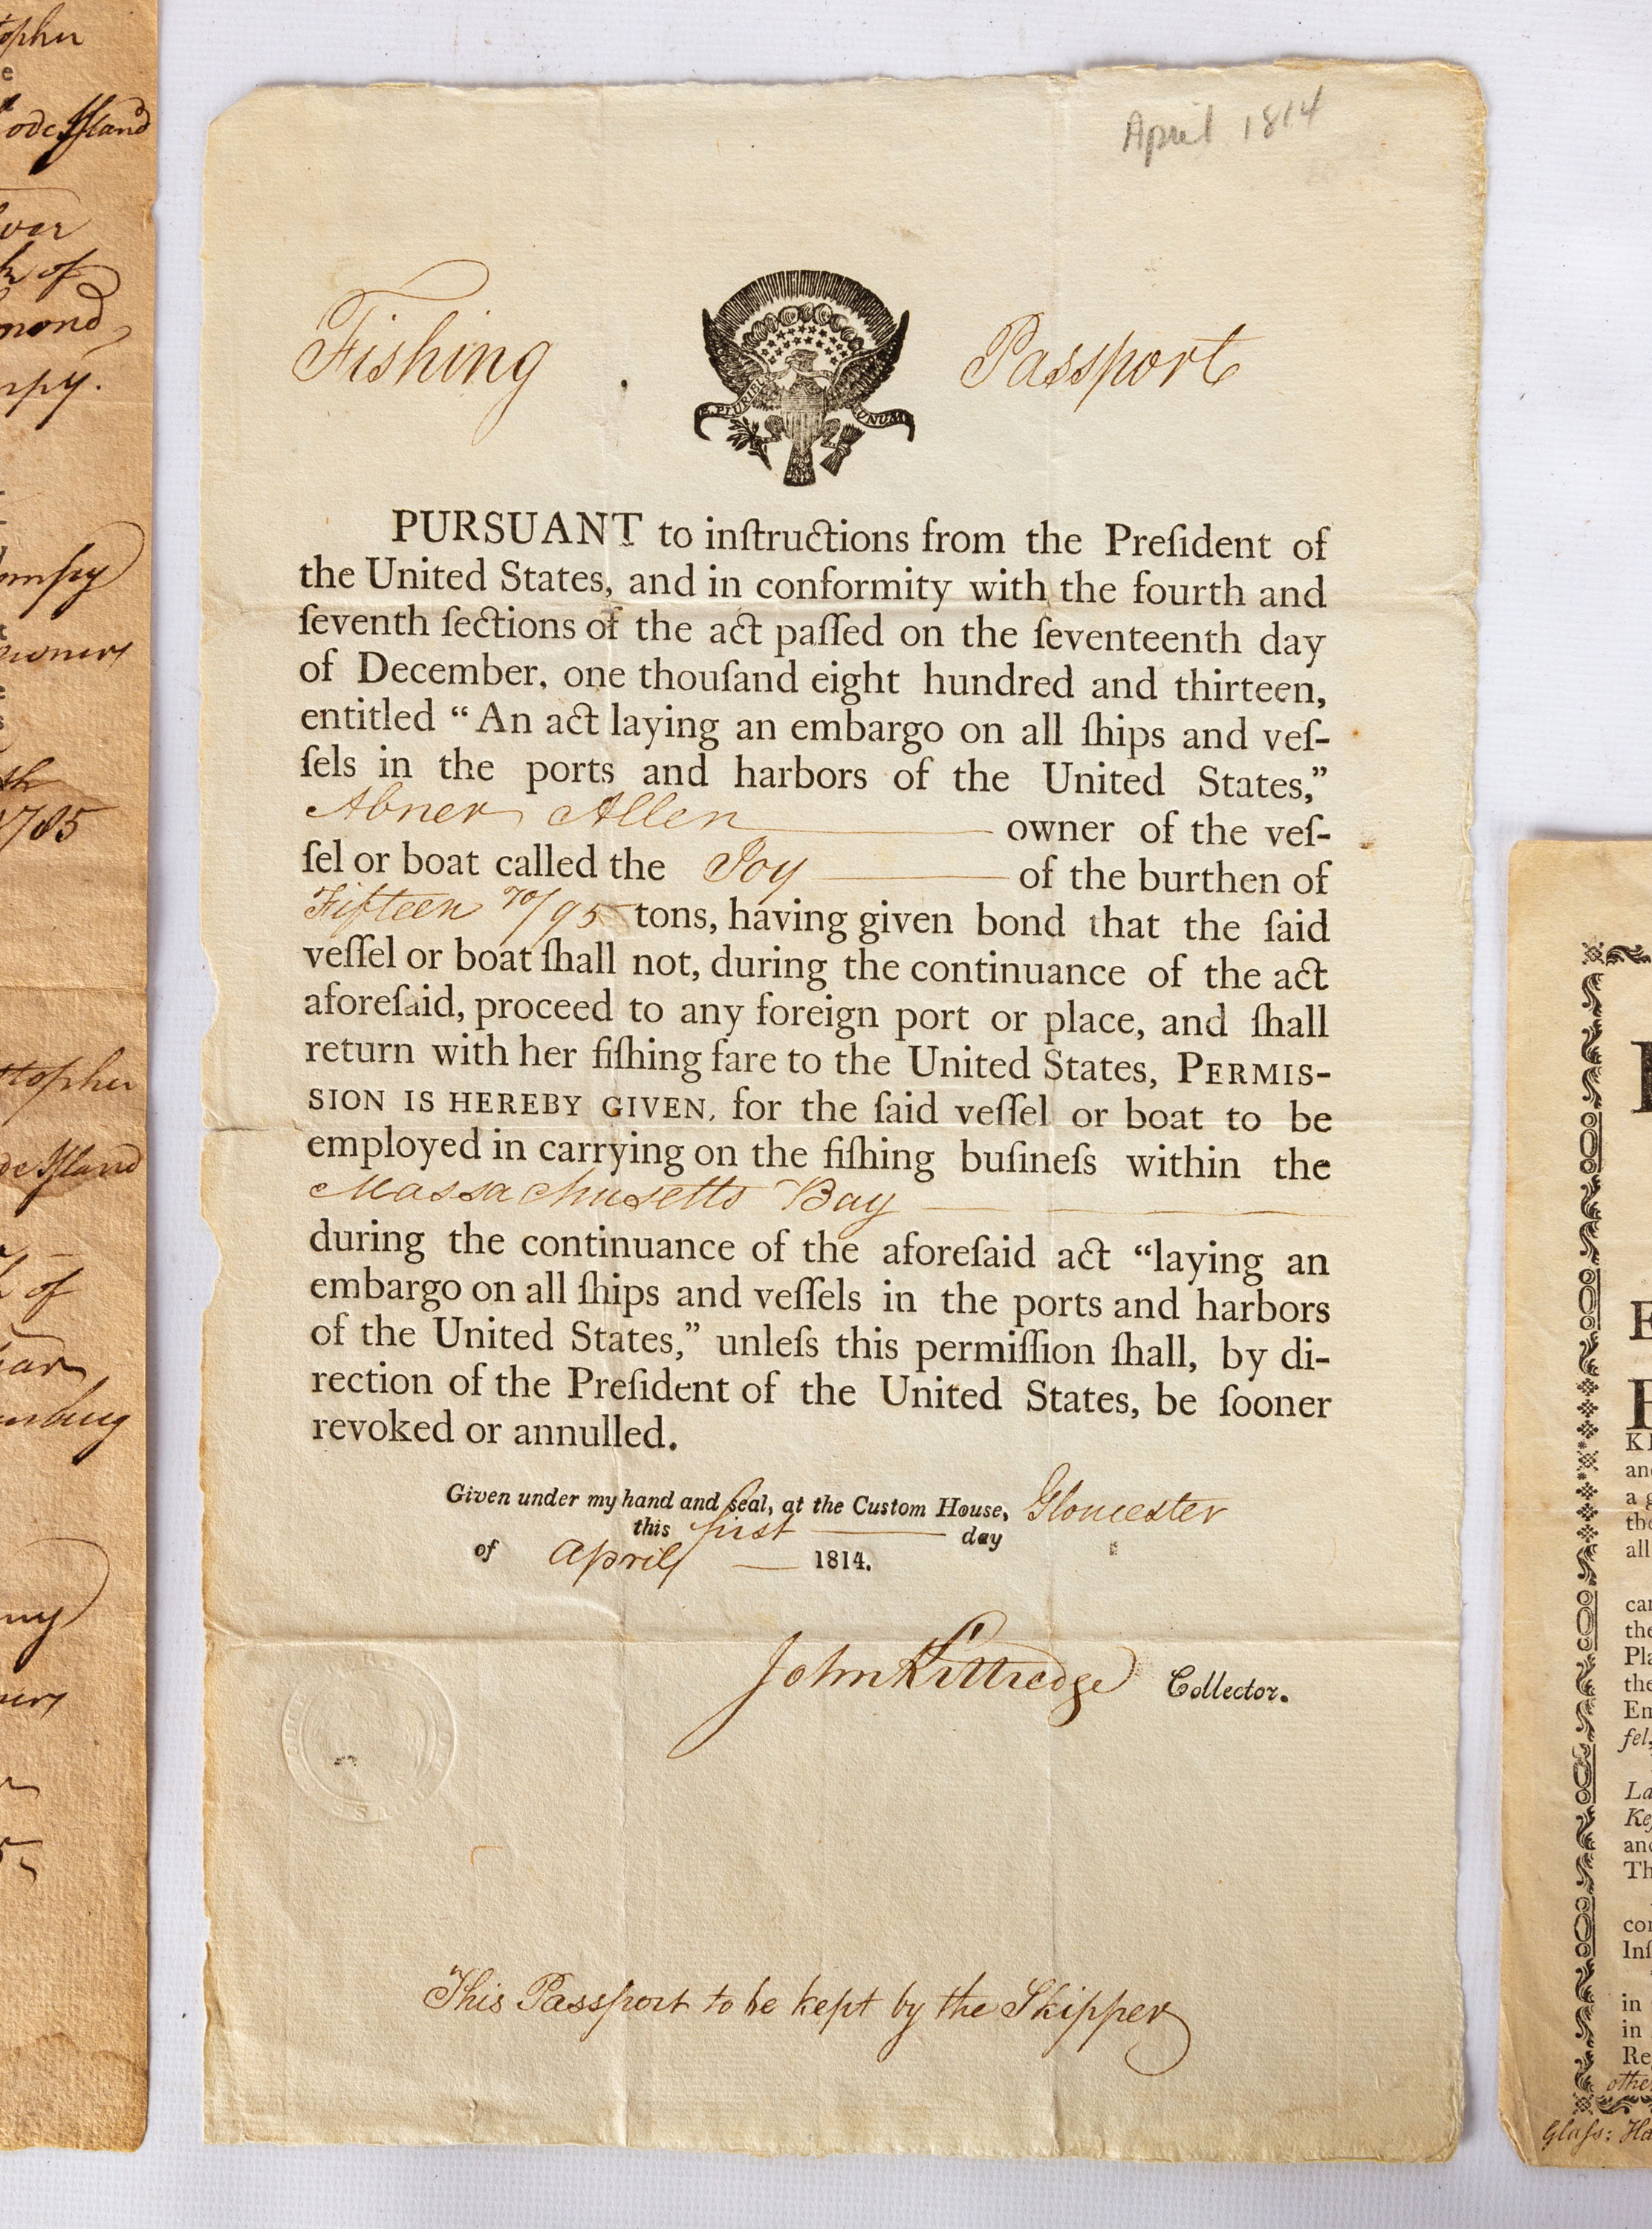 April 1814
Fishing Passport
E PLURIBUS UNUM
PURSUANT to inſtructions from the Preſident of
the United States, and in conformity with the fourth and
ſeventh ſections of the act paſſed on the ſeventeenth day
of December, one thouſand eight hundred and thirteen,
entitled “An act laying an embargo on all ſhips and veſ-
ſels in the ports and harbors of the United States,”
Abner Allen owner of the veſ-
ſel or boat called the Joy of the burthen of
Fifteen 70/95 tons, having given bond that the ſaid
veſſel or boat ſhall not, during the continuance of the act
aforeſaid, proceed to any foreign port or place, and ſhall
return with her fiſhing fare to the United States, PERMIS-
SION IS HEREBY GIVEN, for the ſaid veſſel or boat to be
employed in carrying on the fiſhing buſineſs within the
Massachusetts Bay
during the continuance of the aforeſaid act “laying an
embargo on all ſhips and veſſels in the ports and harbors
of the United States,” unleſs this permiſſion ſhall, by di-
rection of the Preſident of the United States, be ſooner
revoked or annulled.
Given under my hand and ſeal, at the Custom House, Gloucester
this first day
of April 1814.
John Kittredge Collector.
This Passport to be kept by the Skipper
opher
e
ode Iſland
k of
mond
mpy.
owners
1785
stopher
de Iſland
of
E
and
a g
all
the
Pla
the
Em
ſel,
La
and
Th
in
in
Re
othe
Glaſs: Ha